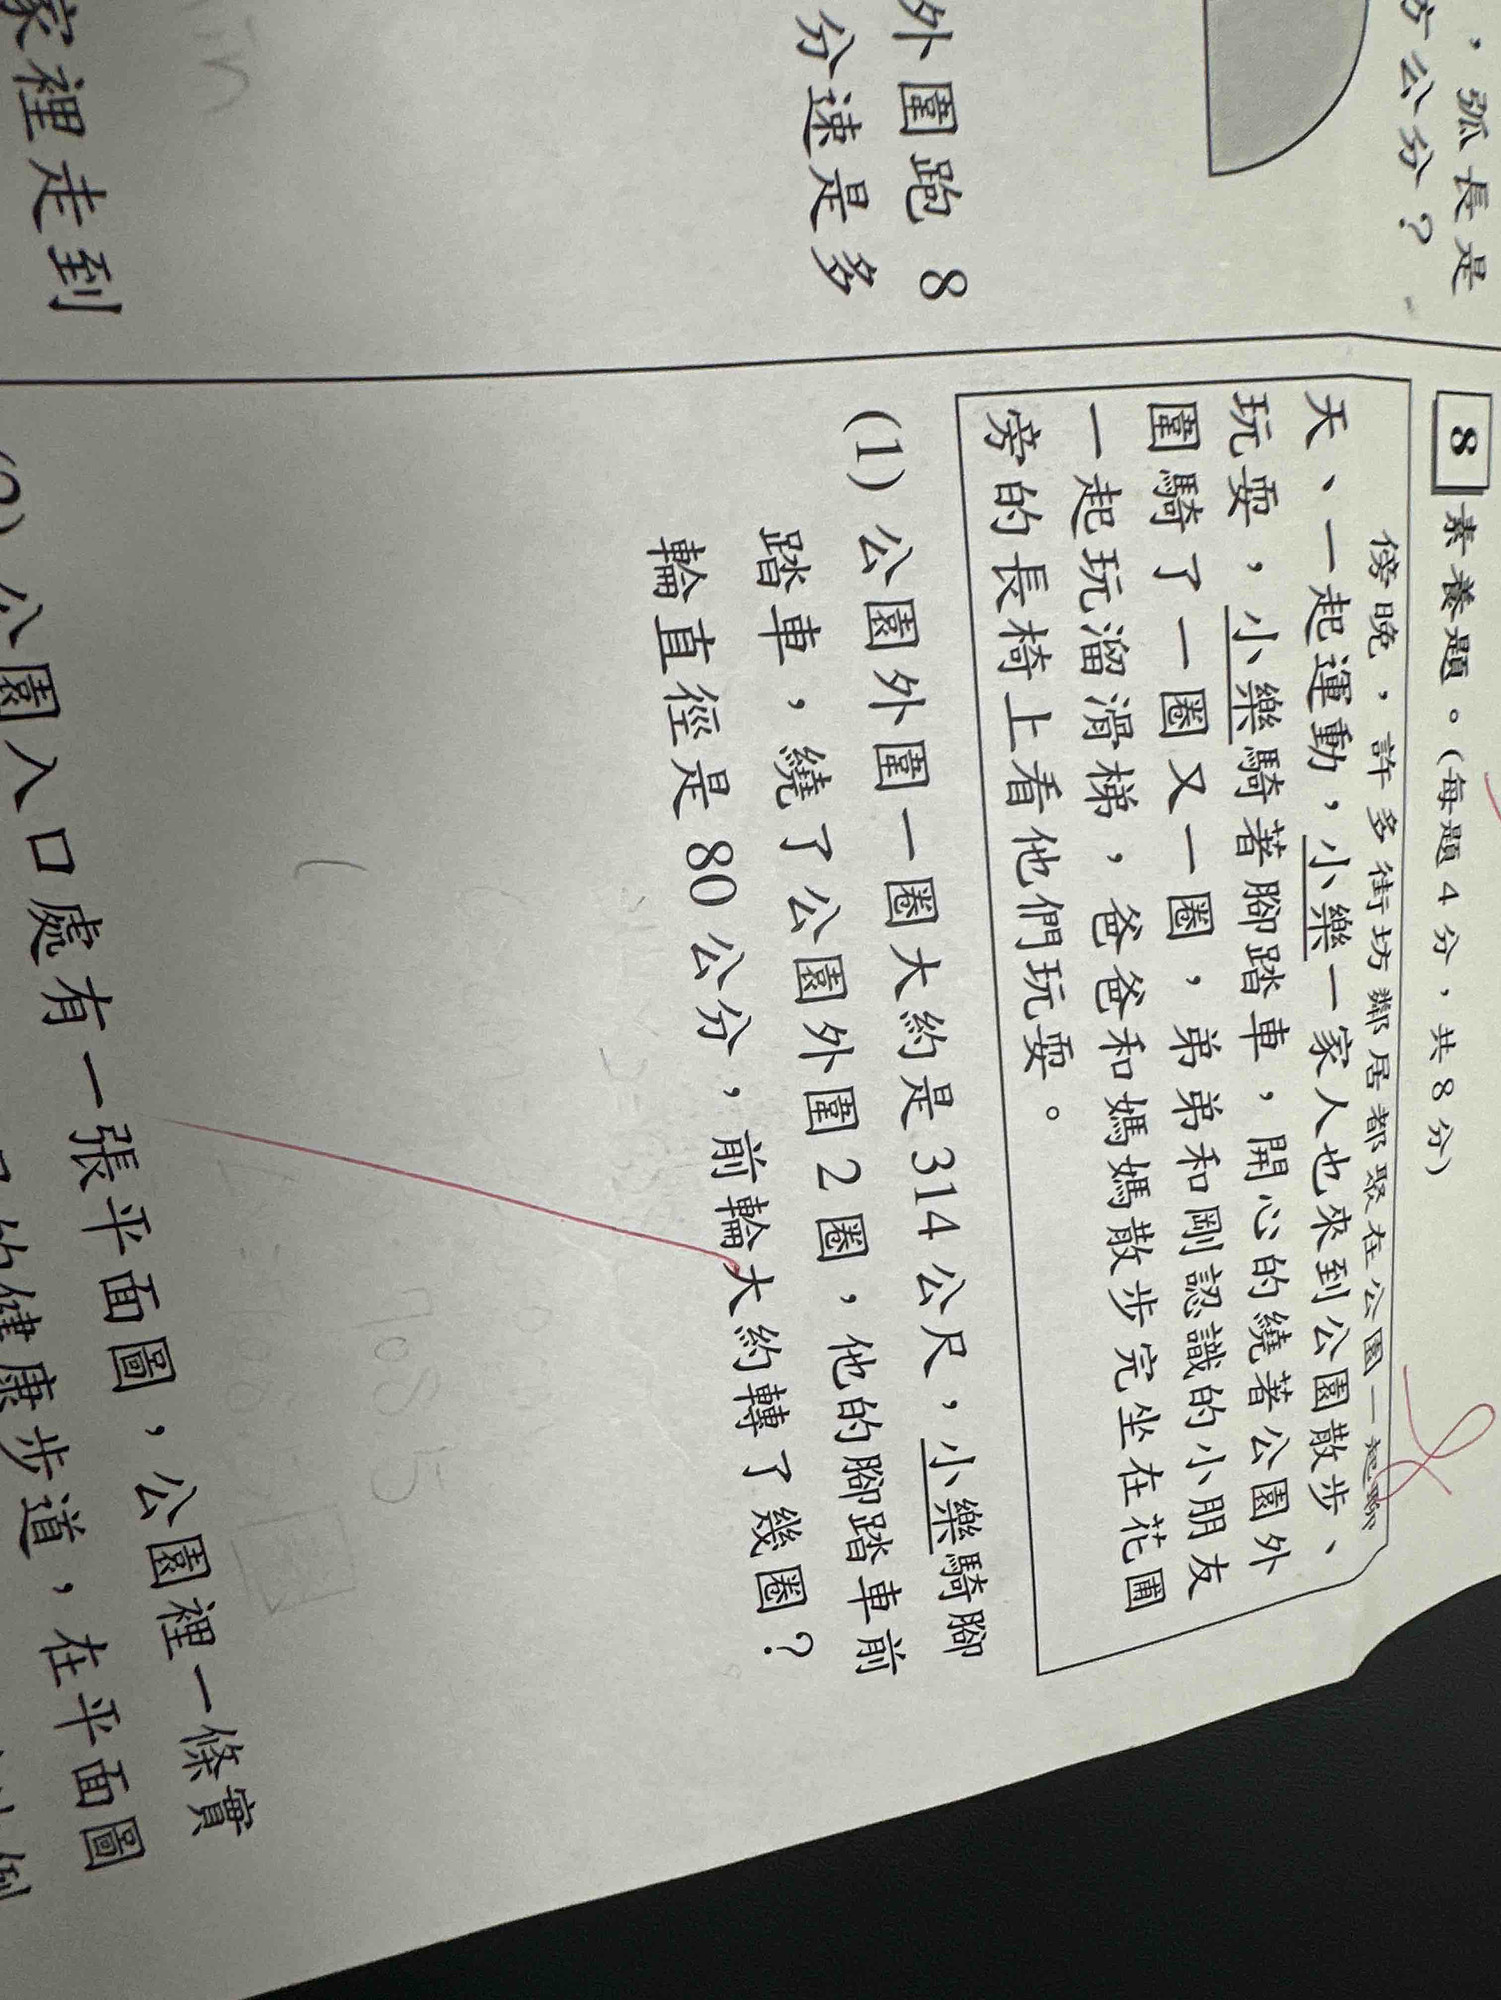 ，弧長是
方公分？
外圍跑 8
分速是多
家裡走到
8 素養題。(每題 4 分，共 8 分)
傍晚，許多街坊鄰居都聚在公園一起聊
天、一起運動，小樂一家人也來到公園散步、
玩耍，小樂騎著腳踏車，開心的繞著公園外
圍騎了一圈又一圈，弟弟和剛認識的小朋友
一起玩溜滑梯，爸爸和媽媽散步完坐在花圃
旁的長椅上看他們玩耍。
(1) 公園外圍一圈大約是 314 公尺，小樂騎腳
踏車，繞了公園外圍 2 圈，他的腳踏車前
輪直徑是 80 公分，前輪大約轉了幾圈？
(2) 公園入口處有一張平面圖，公園裡一條實
的健康步道，在平面圖